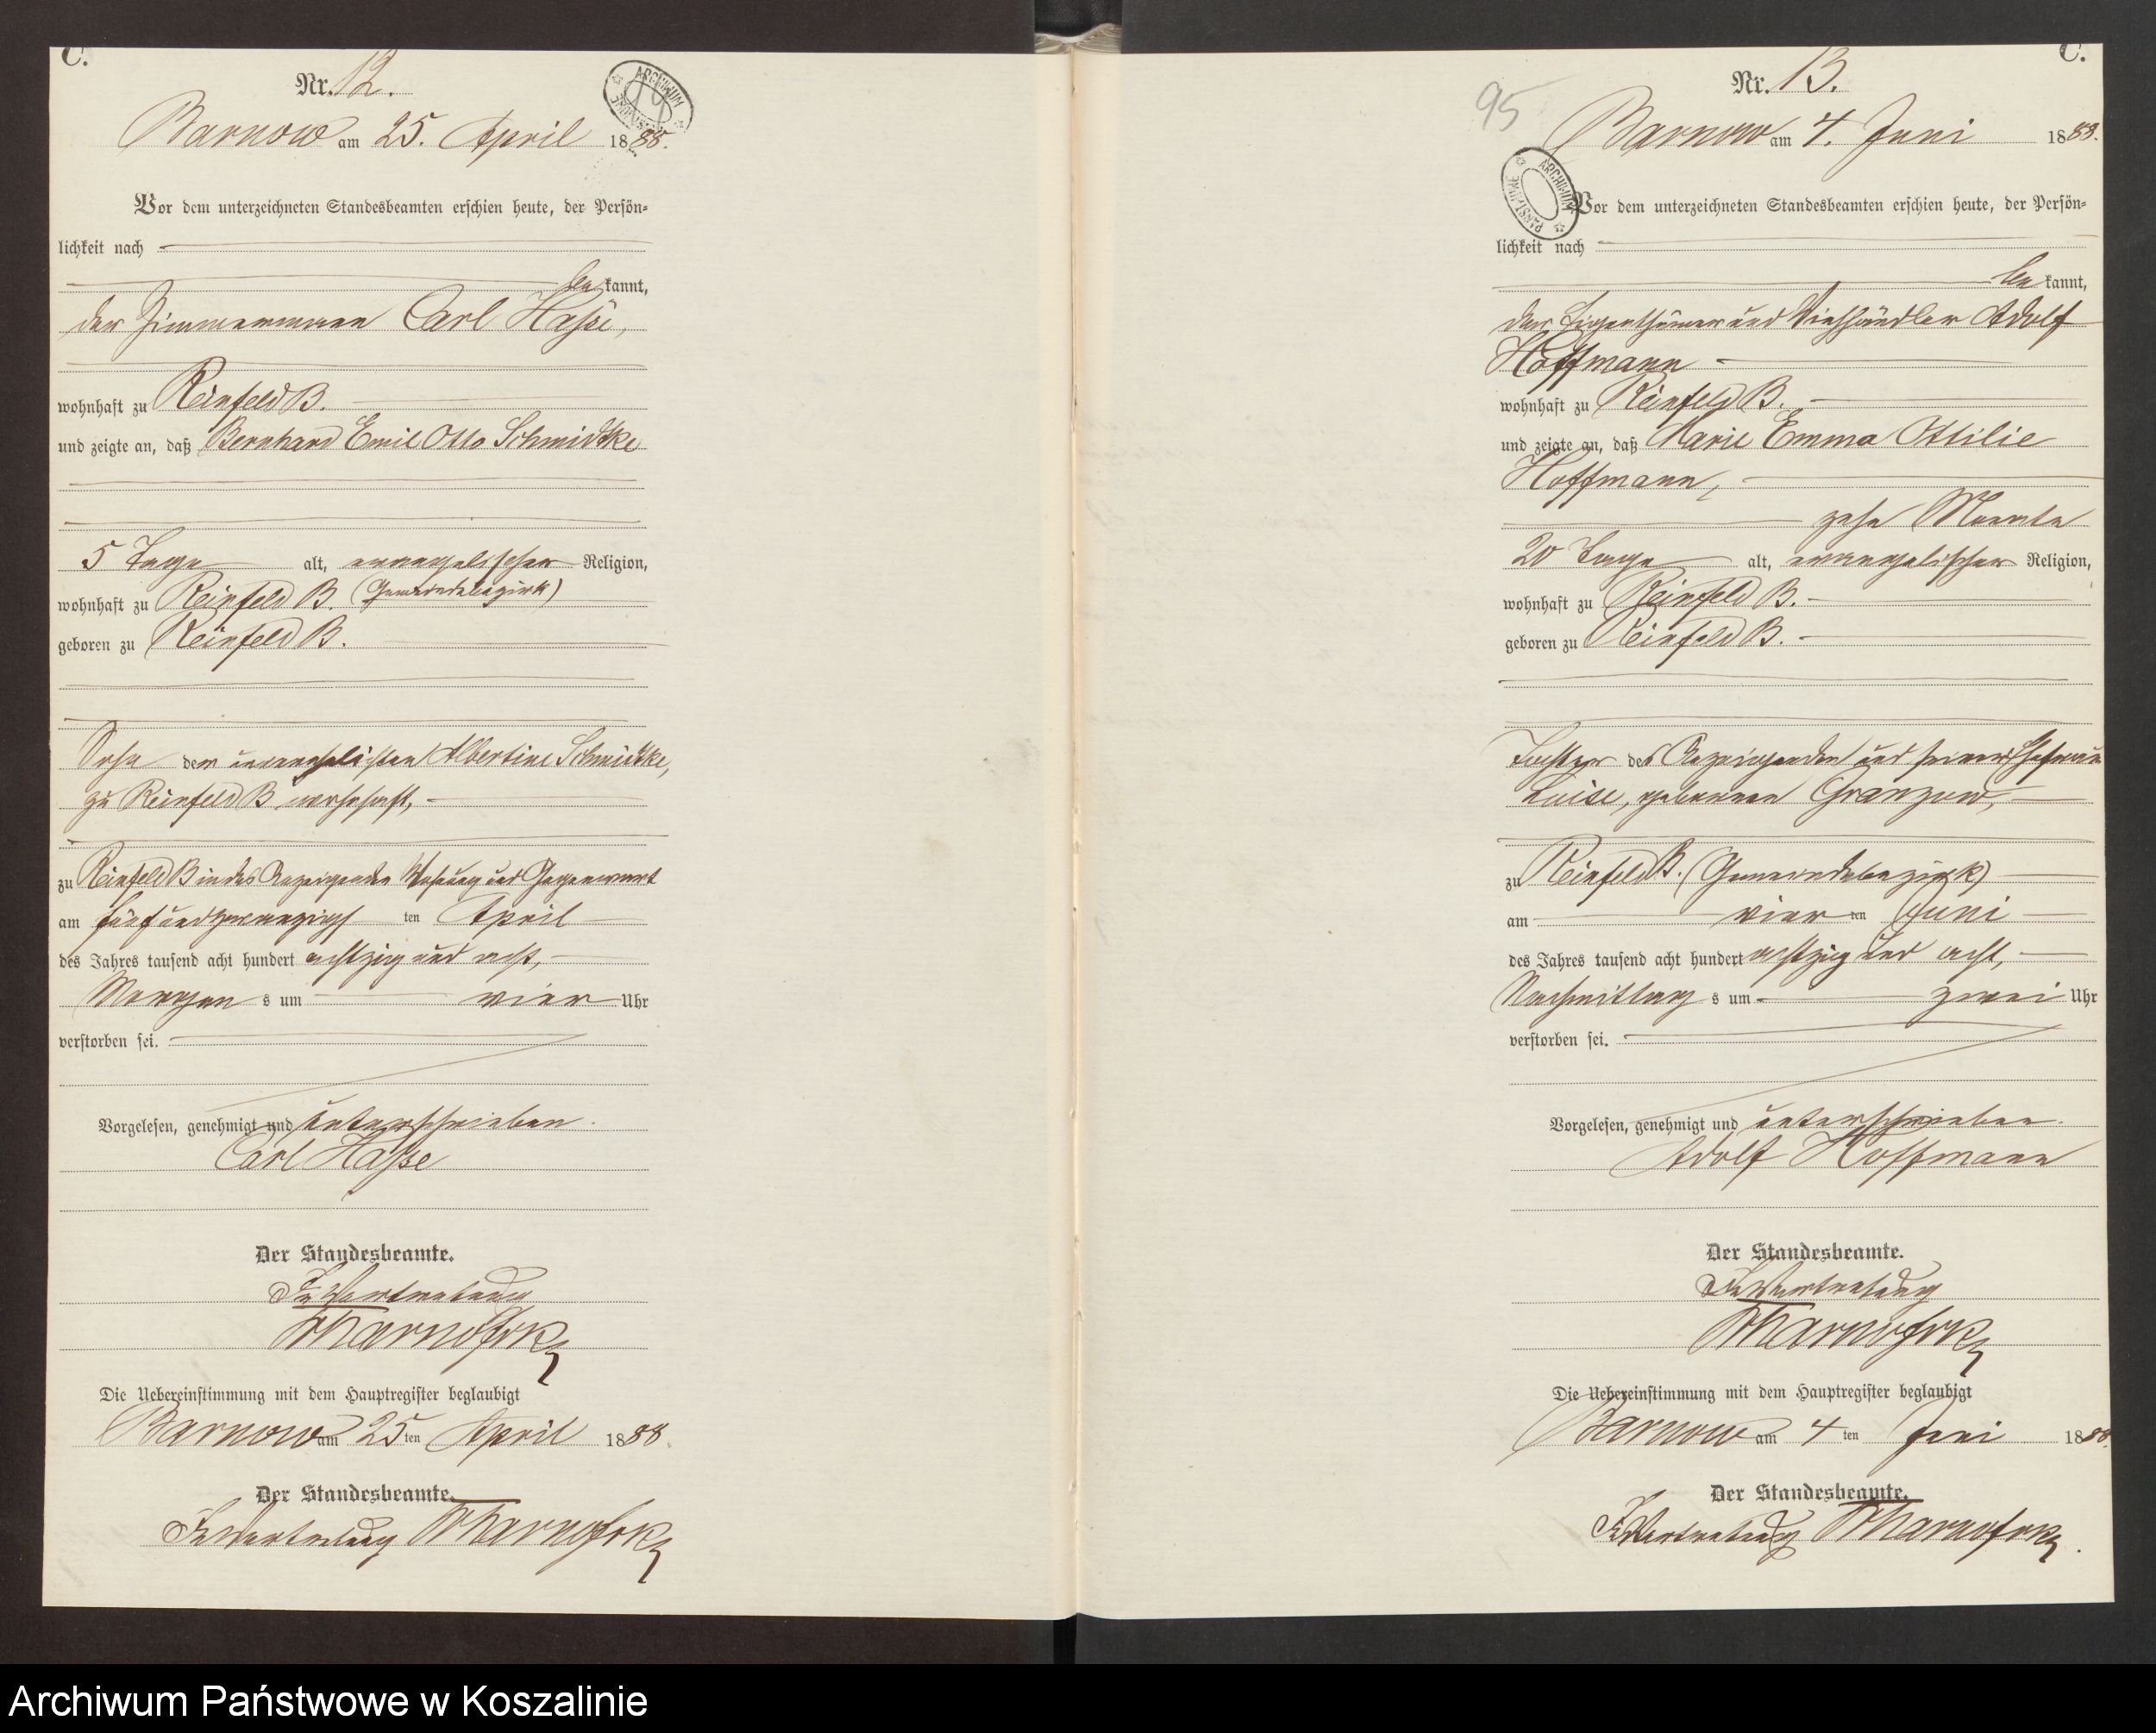 C.
Nr. 12.
ARCHIWUM
Barnow am 25. April 1888.
Vor dem unterzeichneten Standesbeamten erschien heute, der Persön-
lichkeit nach
bekannt,
der Zimmermann Carl Hasse,
wohnhaft zu Reinfeld B.
und zeigte an, daß Bernhard Emil Otto Schmidtke
5 Tage alt, evangelischer Religion,
wohnhaft zu Reinfeld B. (Gemeindebezirk)
geboren zu Reinfeld B.
Sohn der unverehelichten Albertine Schmidtke,
zu Reinfeld B wohnhaft,
zu Reinfeld B in des Anzeigenden Wohnung und Gegenwart
am fünfundzwanzigsten April
des Jahres tausend acht hundert achtzig und acht,
Morgens um vier Uhr
verstorben sei.
Vorgelesen, genehmigt und unterschrieben.
Carl Hasse
Der Standesbeamte.
In Vertretung
Die Uebereinstimmung mit dem Hauptregister beglaubigt
Barnow am 25ten April 1888.
Der Standesbeamte.
In Vertretung
C.
Nr. 13.
95
Barnow am 4. Juni 1888.
ARCHIWUM PAŃSTWOWE
Vor dem unterzeichneten Standesbeamten erschien heute, der Persön-
lichkeit nach
bekannt,
der Eigenthümer und Viehhändler Adolf
Hoffmann
wohnhaft zu Reinfeld B.
und zeigte an, daß Marie Emma Ottilie
Hoffmann,
zehn Monate
20 Tage alt, evangelischer Religion,
wohnhaft zu Reinfeld B.
geboren zu Reinfeld B.
Tochter des Anzeigenden und seiner Ehefrau
Luise, geborenen Granzow,
zu Reinfeld B. (Gemeindebezirk)
am vierten Juni
des Jahres tausend acht hundert achtzig und acht,
Nachmittags um zwei Uhr
verstorben sei.
Vorgelesen, genehmigt und unterschrieben.
Adolf Hoffmann
Der Standesbeamte.
In Vertretung
Die Uebereinstimmung mit dem Hauptregister beglaubigt
Barnow am 4ten Juni 1888.
Der Standesbeamte.
In Vertretung
Archiwum Państwowe w Koszalinie